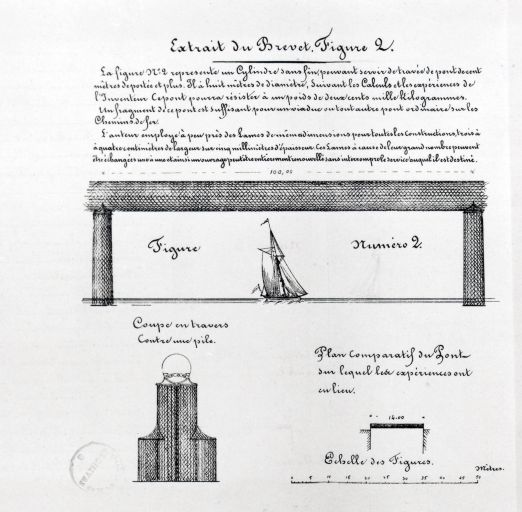 Extrait du Brevet. Figure 2.
La figure N° 2 représente un Cylindre sans fin, pouvant servir de travée de pont de cent
mètres de portée et plus. Il a huit mètres de diamètre, suivant les Calculs et les expériences de
l'Inventeur Ce pont pourra résister à un poids de deux cents mille kilogrammes.
Un fragment de ce pont est suffisant pour un viaduc ou tout autre pont ordinaire sur les
Chemins de fer.
L'auteur emploie à peu près des Lames de même dimensions pour toutes les Constructions, trois à
à quatre centimètres de largeur sur cinq millimètres d'épaisseur. Ces Lames à cause de leur grand nombre peuvent
être changées une à une et ainsi un ouvrage peut être entièrement renouvellé sans interrompre le service auquel il est destiné.
100,00
Figure Numéro 2.
Coupe en travers
Contre une pile.
Plan Comparatif du Pont
sur lequel les expériences ont
eu lieu.
14.00
Echelle des Figures.
Mètres.
5 10 15 20 25 30 35 40 45 50